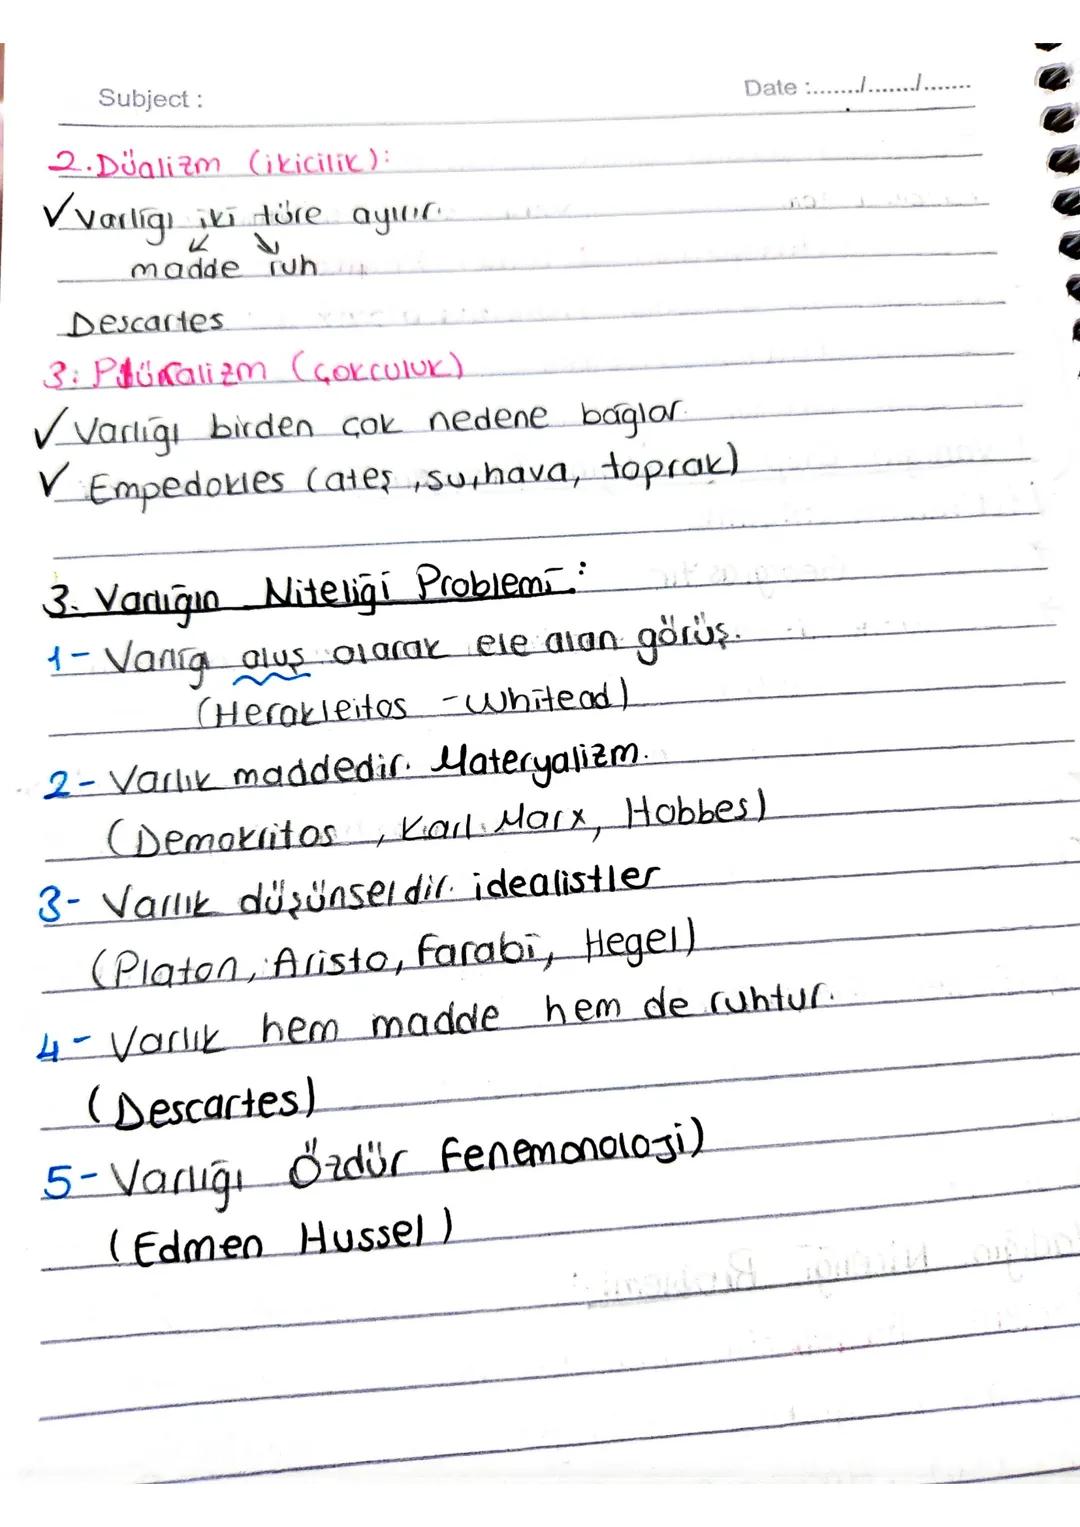 Subject :
Date :......./......./.......
2.Düalizm (ikicilik):
✓ Varlığı iki türe ayırır.
madde ruh
Descartes
3: Plüralizm (çokculuk)
✓ Varlığı birden çok nedene bağlar.
✓ Empedokles (ateş, su, hava, toprak)
3. Varlığın Niteliği Problemi:
1- Varlığ oluş olarak ele alan görüş.
(Herakleitos - Whitead)
2- Varlık maddedir. Materyalizm.
(Demokritos, Karl Marx, Hobbes)
3- Varlık düşünseldir. idealistler
(Platon, Aristo, Farabi, Hegel)
4- Varlık hem madde hem de ruhtur.
(Descartes)
5- Varlığı Özdür Fenemonoloji)
(Edmen Hussel)